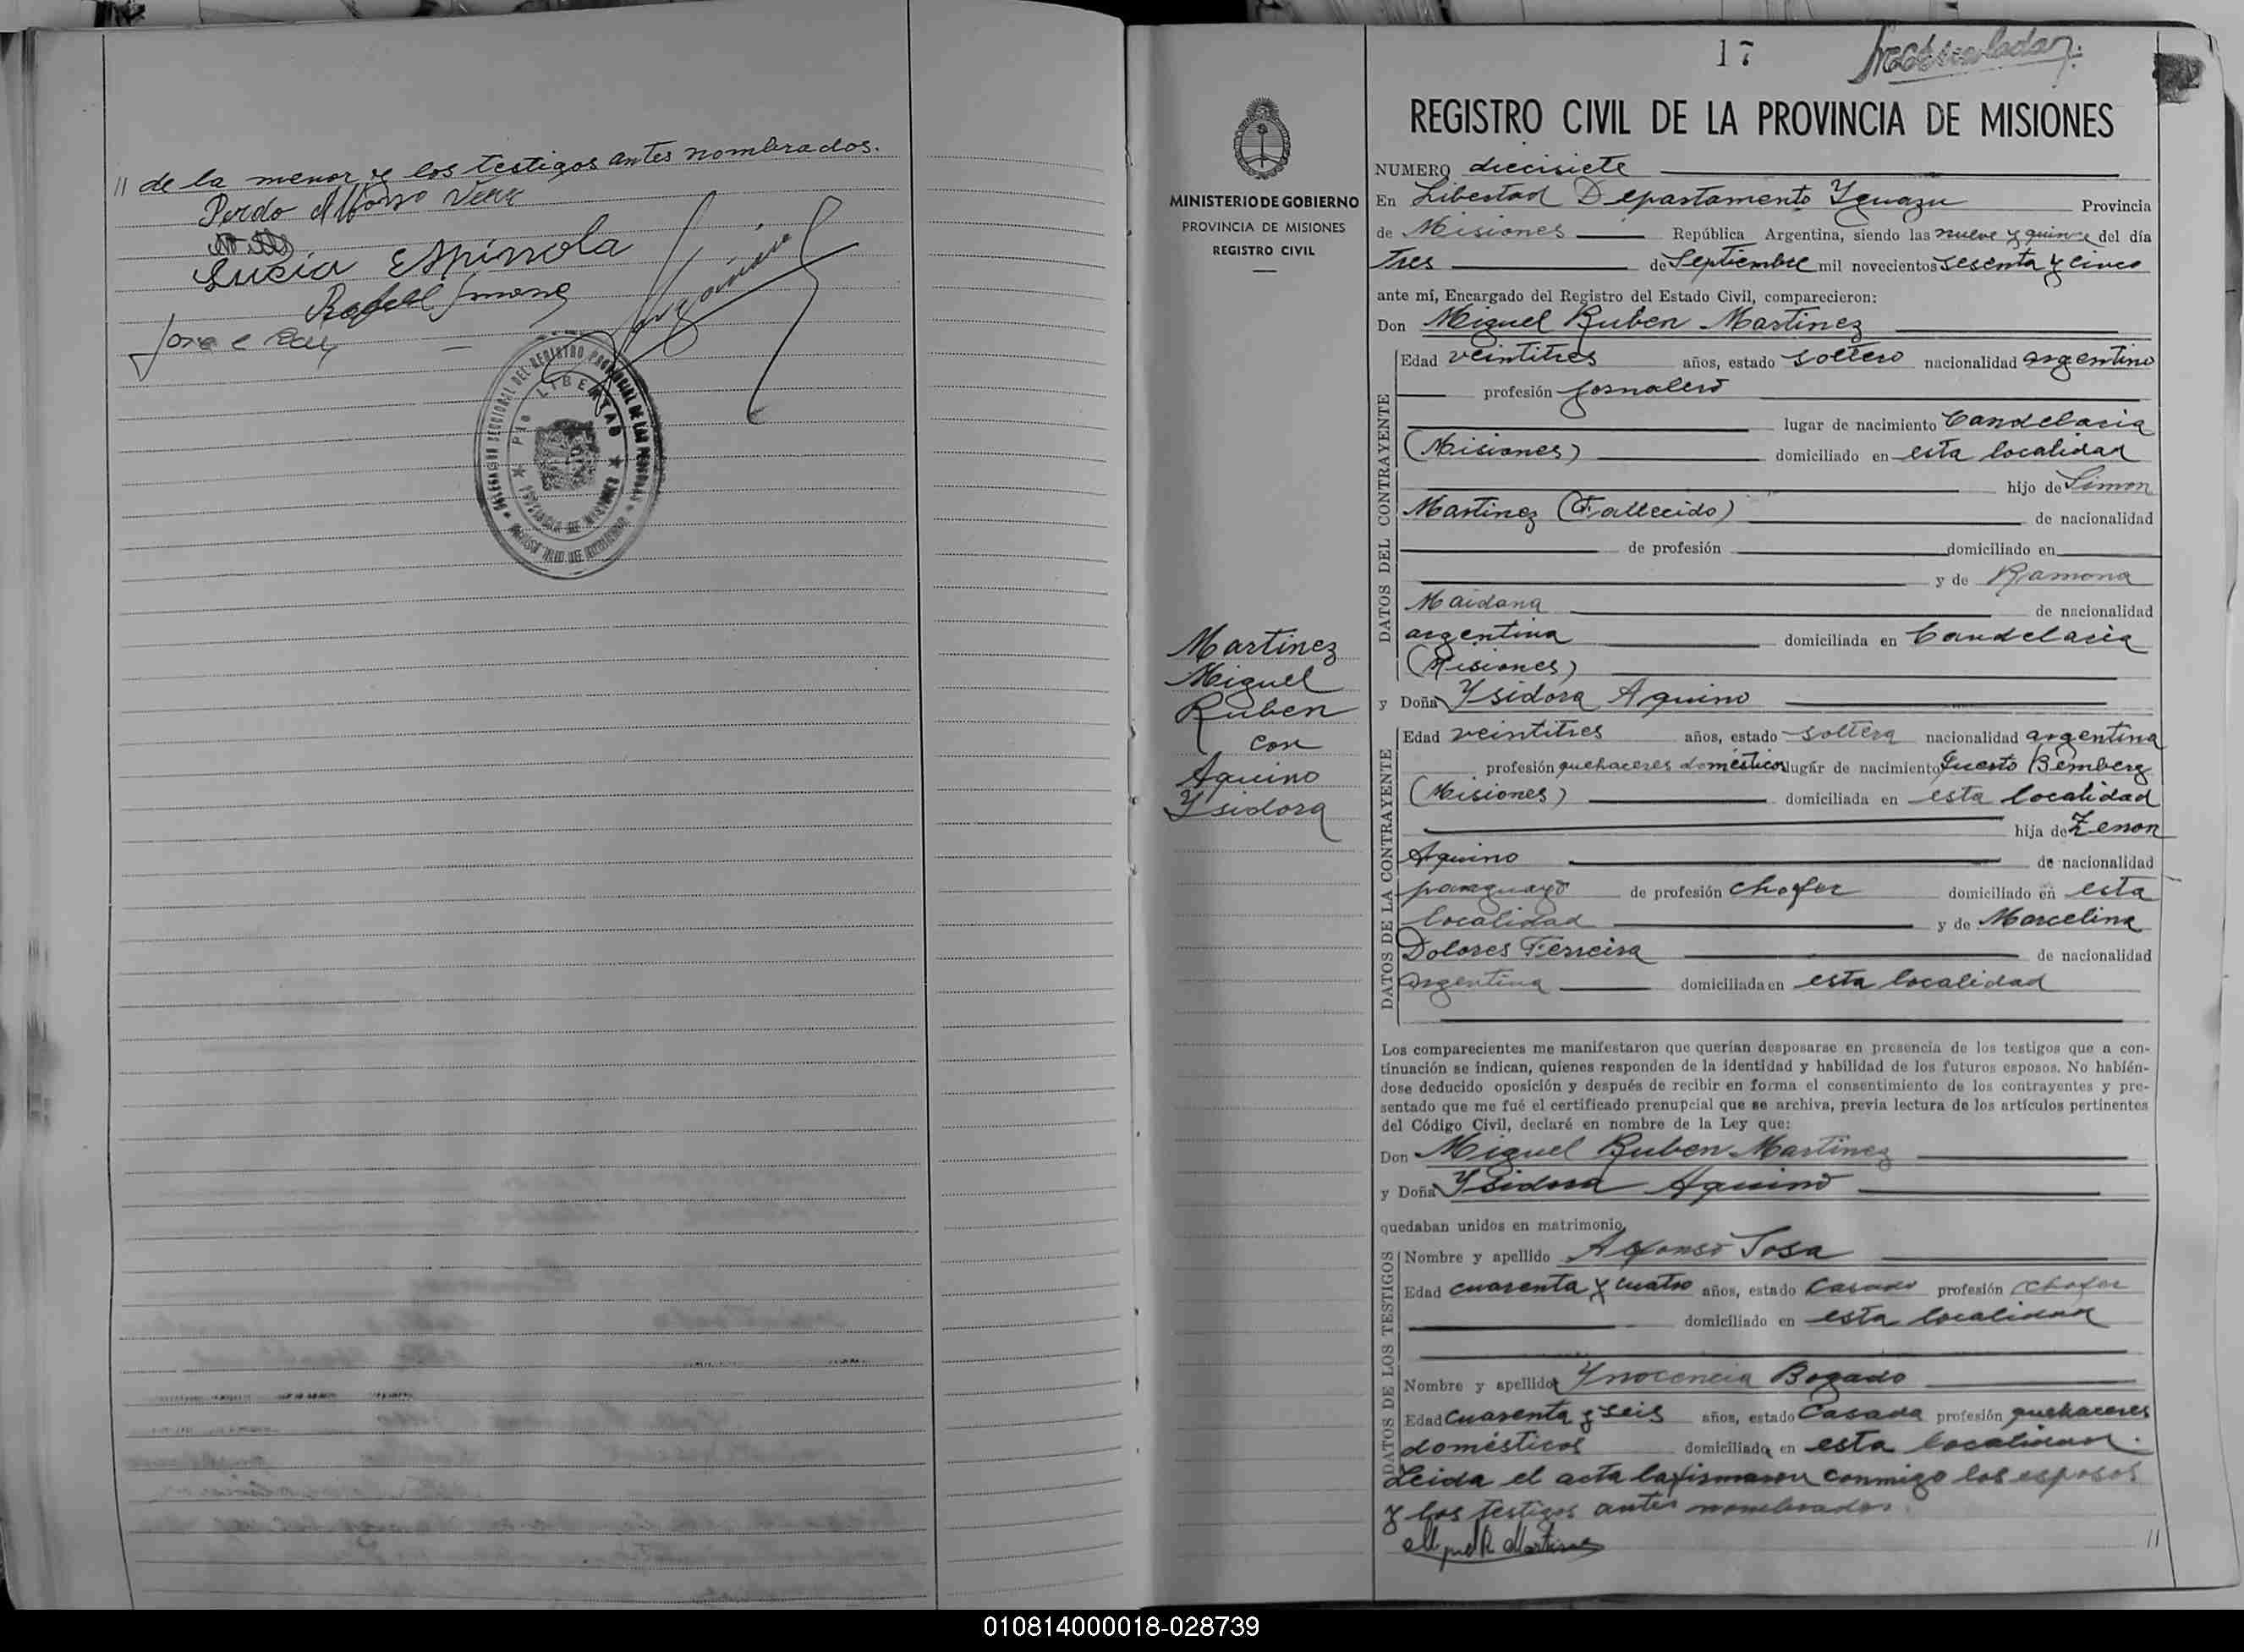 // de la menor y los testigos antes nombrados.
Perdo Alfonso
Lucia Espinnola
Rafael
Jose
DELEGACION SECCIONAL DEL REGISTRO PROVINCIAL DE LAS PERSONAS
Pto LIBERTAD
PROVINCIA DE MISIONES
17
REGISTRO CIVIL DE LA PROVINCIA DE MISIONES
MINISTERIO DE GOBIERNO
PROVINCIA DE MISIONES
REGISTRO CIVIL
Martinez
Miguel
Ruben
con
Aquino
Ysidora
NUMERO diecisiete
En Libertad Departamento Yguazu Provincia
de Misiones República Argentina, siendo las nueve y quince del día
Tres de Septiembre mil novecientos sesenta y cinco
ante mí, Encargado del Registro del Estado Civil, comparecieron:
Don Miguel Ruben Martinez
DATOS DEL CONTRAYENTE
Edad veintitres años, estado soltero nacionalidad argentino
profesión jornalero
lugar de nacimiento Candelaria
(Misiones) domiciliado en esta localidad
hijo de Simon
Martinez (Fallecido) de nacionalidad
de profesión domiciliado en
y de Ramona
Maidana de nacionalidad
argentina domiciliada en Candelaria
(Misiones)
y Doña Ysidora Aquino
DATOS DE LA CONTRAYENTE
Edad veintitres años, estado soltera nacionalidad argentina
profesión quehaceres domésticos lugar de nacimiento Puerto Bemberg
(Misiones) domiciliada en esta localidad
hija de Zenon
Aquino de nacionalidad
paraguayo de profesión chofer domiciliado en esta
localidad y de Marcelina
Dolores Ferreira de nacionalidad
argentina domiciliada en esta localidad
Los comparecientes me manifestaron que querían desposarse en presencia de los testigos que a con-
tinuación se indican, quienes responden de la identidad y habilidad de los futuros esposos. No habién-
dose deducido oposición y después de recibir en forma el consentimiento de los contrayentes y pre-
sentado que me fué el certificado prenupcial que se archiva, previa lectura de los artículos pertinentes
del Código Civil, declaré en nombre de la Ley que:
Don Miguel Ruben Martinez
y Doña Ysidora Aquino
quedaban unidos en matrimonio
DATOS DE LOS TESTIGOS
Nombre y apellido Alfonso Sosa
Edad cuarenta y cuatro años, estado casado profesión chofer
domiciliado en esta localidad
Nombre y apellido Ynocencia Bogado
Edad cuarenta y seis años, estado casada profesión quehaceres
domésticos domiciliada en esta localidad.
Leida el acta la firmaron conmigo los esposos
y los testigos antes nombrados.
Miguel R Martinez
//
010814000018-028739